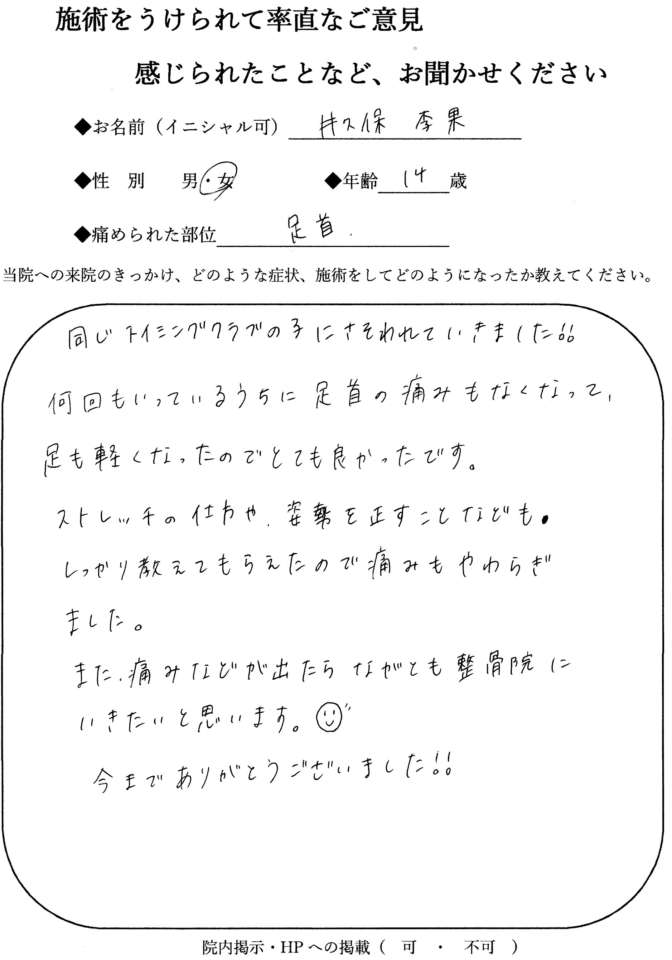 施術をうけられて率直なご意見
感じられたことなど、お聞かせください
◆お名前（イニシャル可） 井久保 李果
◆性 別 男・女 ◆年齢 14 歳
◆痛められた部位 足首.
当院への来院のきっかけ、どのような症状、施術をしてどのようになったか教えてください。
同じ トイミングクラブの子にさそわれていきました!!
何回もいっているうちに 足首の痛みもなくなって、
足も軽くなったのでとても良かったです。
ストレッチの仕方や、姿勢を正すことなども.
しっかり教えてもらえたので痛みもやわらぎ
ました。
また、痛みなどが出たら ながとも整骨院に
いきたいと思います。
今までありがとうございました!!
院内掲示・HPへの掲載（ 可 ・ 不可 ）